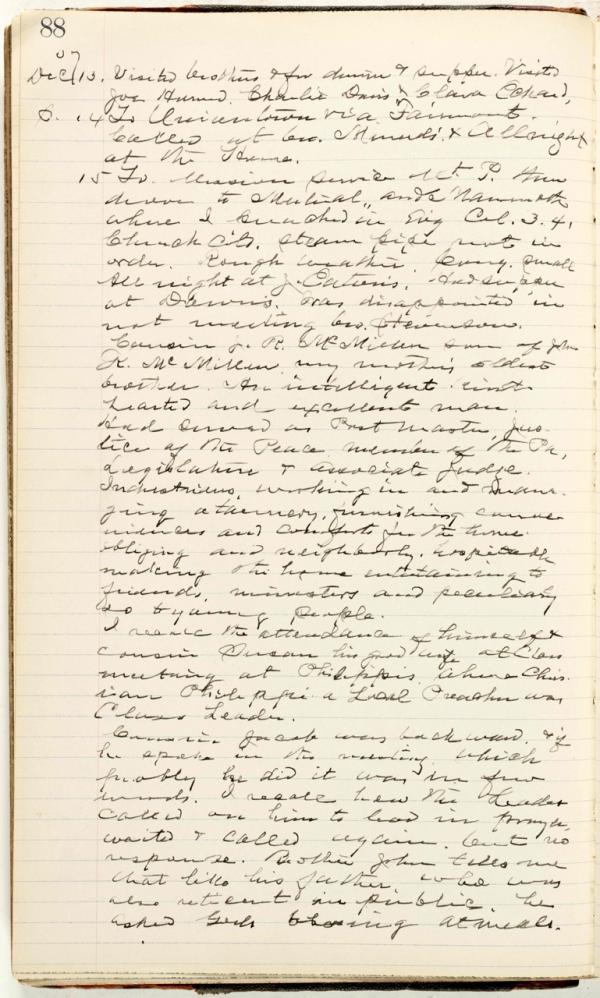 88
07
Dec 13. Visited brothers & for dinner & supper. Visited
Joe Charlie Davis & Clara
S. 14 To Uniontown via Fairmont.
Called at bro. & All night
at the Home.
15 To. Mission service Mt. P. then
drove to Mutual, and
where I preached in Eng Col. 3.4,
Church Cld. steam pipe not in
order. Rough weather. Cong. small
All night at J. And supper
at Downs. Was disappointed in
not meeting bro. Stevenson.
Cousin J. R. McMillen son of John
R. McMillen my mother's oldest
brother. An intelligent kind
hearted and excellent man.
Had served as Post Master, Jus-
tice of the Peace, member of the Pa,
Legislature & associate Judge.
Industrious, working in and mana-
ging a tannery, furnishing conve-
niences and comforts for the home.
obliging and neighborly, hospitable
making the home entertaining to
friends, ministers and peculiarly
so to young people.
I recall the attendance of himself &
cousin Susan his good wife at Class
meeting at Philippis, where Chris-
tian Philippi a Local Preacher was
Class Leader.
Cousin Jacob was backward, & if
he spoke in the meeting which
probably he did it was in few
words. I recall how the Leader
called on him to lead in prayer,
waited & called again, but no
response. Brother John tells me
that like his father, who was
also reticent in public, he
asked Gods blessing at meals.